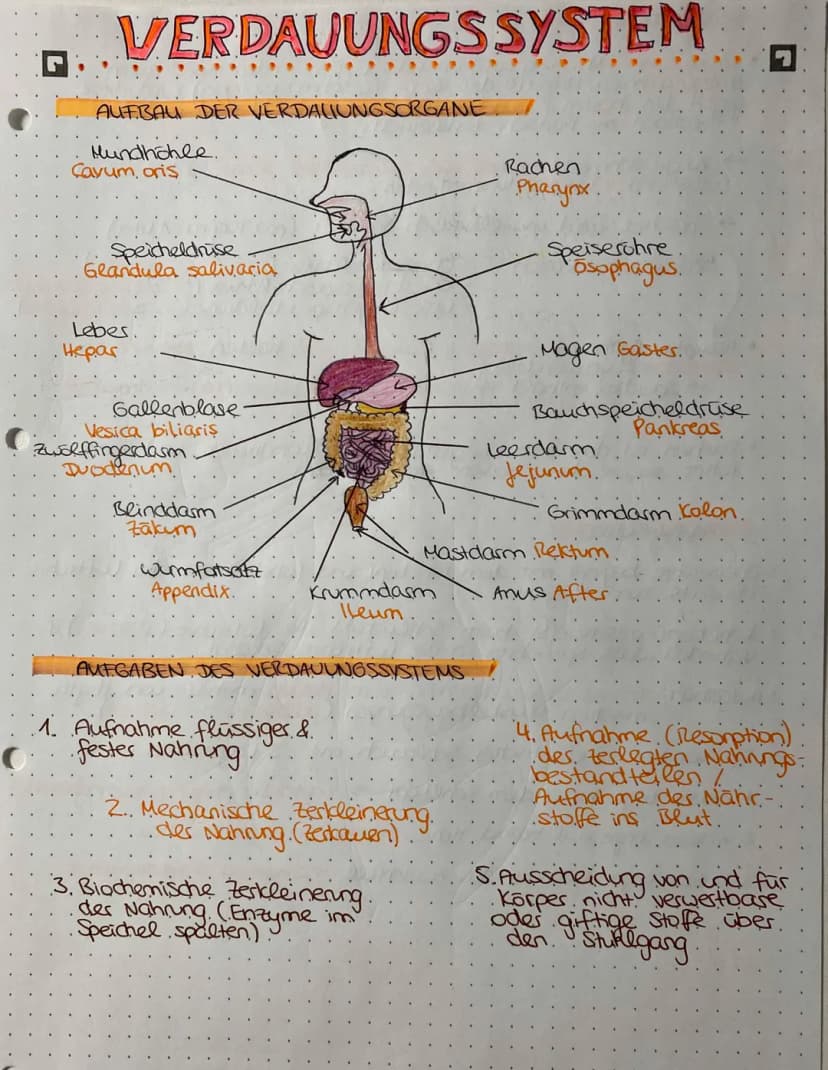 VERDAUUNGSSYSTEM
AUFBAU DER VERDAUUNGSORGANE
Mundhöhle
Cavum oris
Rachen
Pharynx
Speicheldrüse
Glandula salivaria
Speiseröhre
Ösophagus
Leber
Hepar
Magen Gaster
Gallenblase
Vesica biliaris
Bauchspeicheldrüse
Pankreas
Zwölffingerdarm
Duodenum
Leerdarm
Jejunum
Blinddarm
Zäkum
Grimmdarm Kolon
Mastdarm Rektum
Wurmfortsatz
Appendix
Krummdarm
Ileum
Anus After
AUFGABEN DES VERDAUUNGSSYSTEMS
1. Aufnahme flüssiger &
fester Nahrung
2. Mechanische Zerkleinerung
der Nahrung (Zerkauen)
3. Biochemische Zerkleinerung
der Nahrung (Enzyme im
Speichel spalten)
4. Aufnahme (Resorption)
der zerlegten Nahrungs-
bestandteilen /
Aufnahme der Nähr-
stoffe ins Blut
5. Ausscheidung von und für
Körper nicht verwertbare
oder giftige Stoffe über
den Stuhlgang